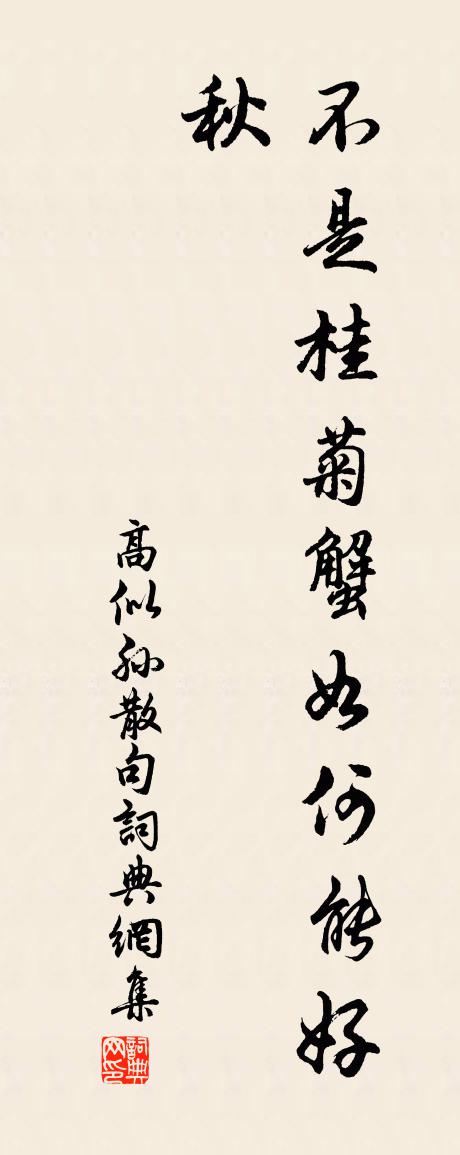 不是桂菊蟹如何能好
秋
高似孙散句詞典網集
詞典网印